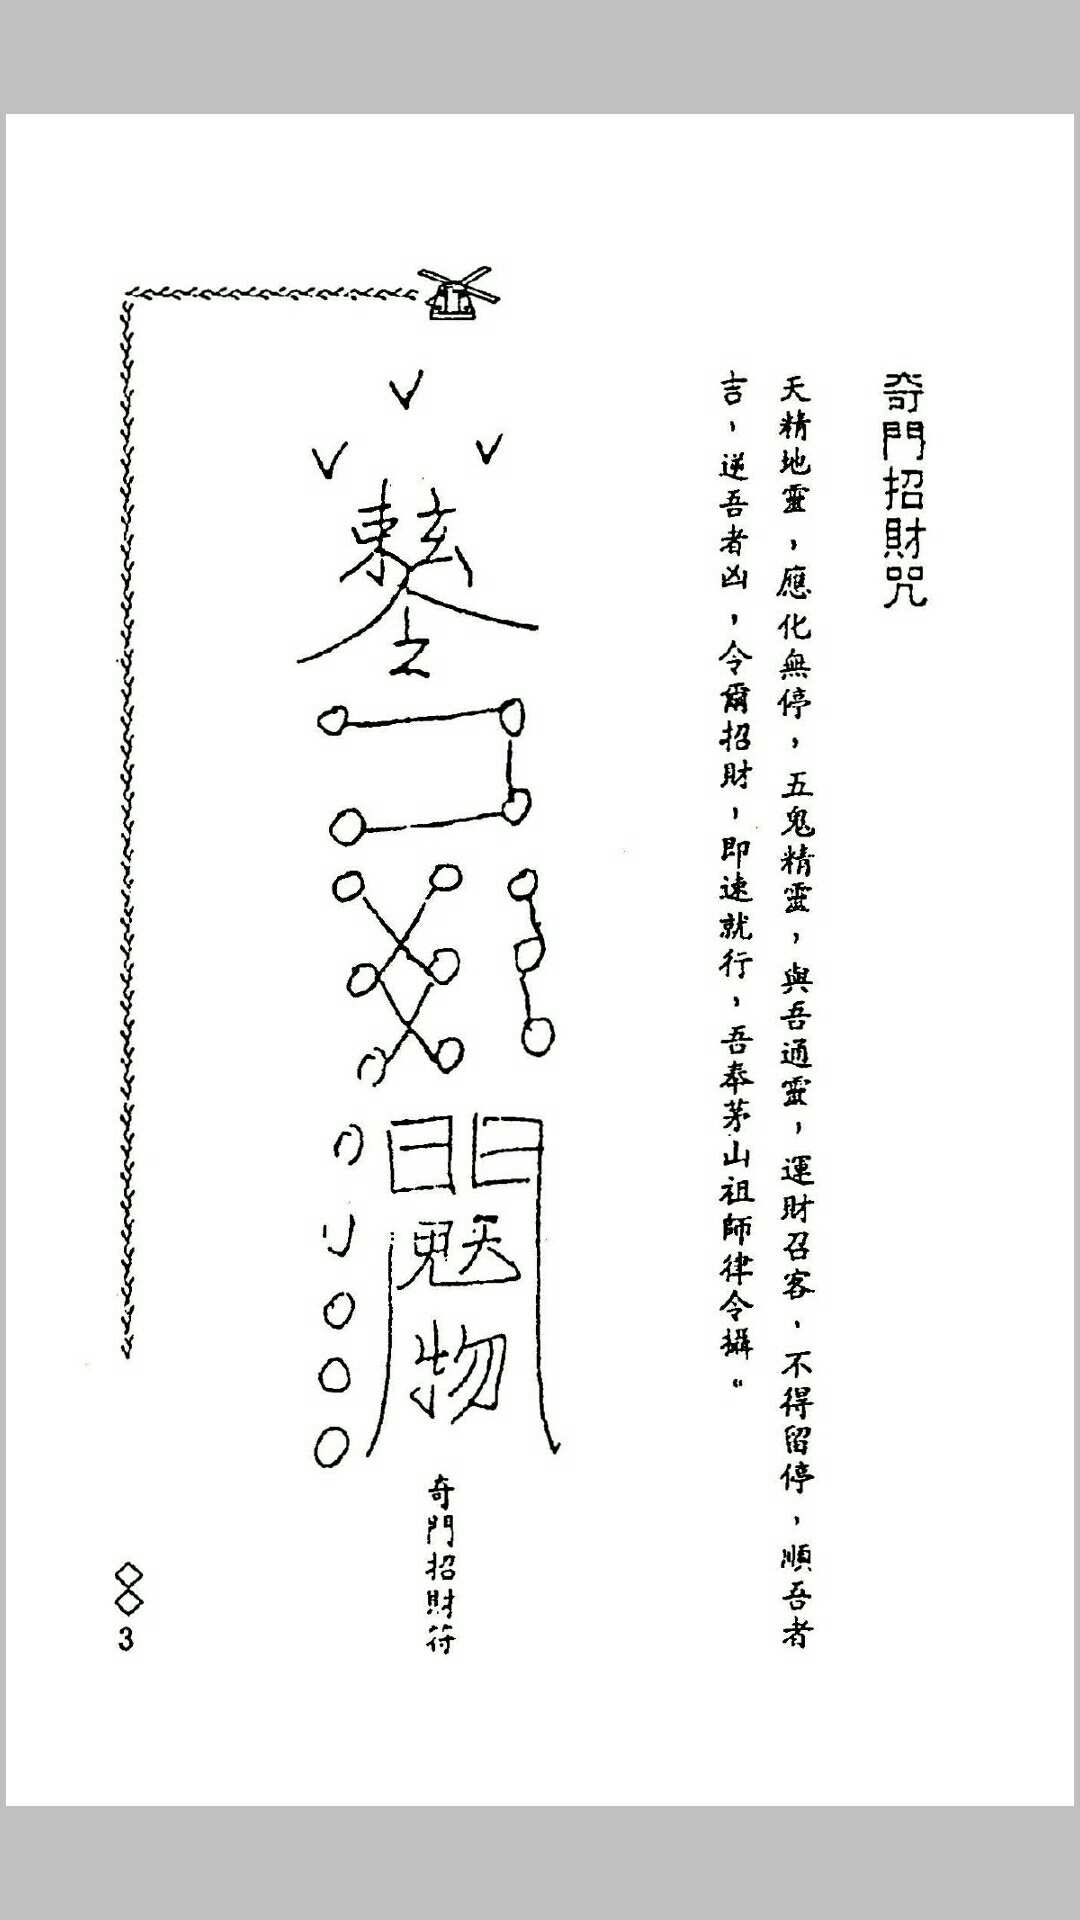 奇門招財咒
天精地靈，應化無停，五鬼精靈，與吾通靈，運財召客，不得留停，順吾者
吉，逆吾者凶，令爾招財，即速就行，吾奉茅山祖師律令攝。
物
奇門招財符
3